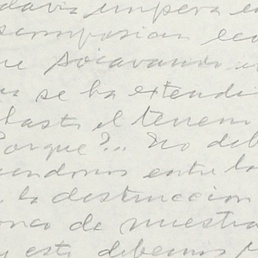 davia impera e
composicion eco
e socavando
s se ha extendi
hasta el terren
Porque?... No deb
entre la
la destruccion
de nuestra
y este debemos